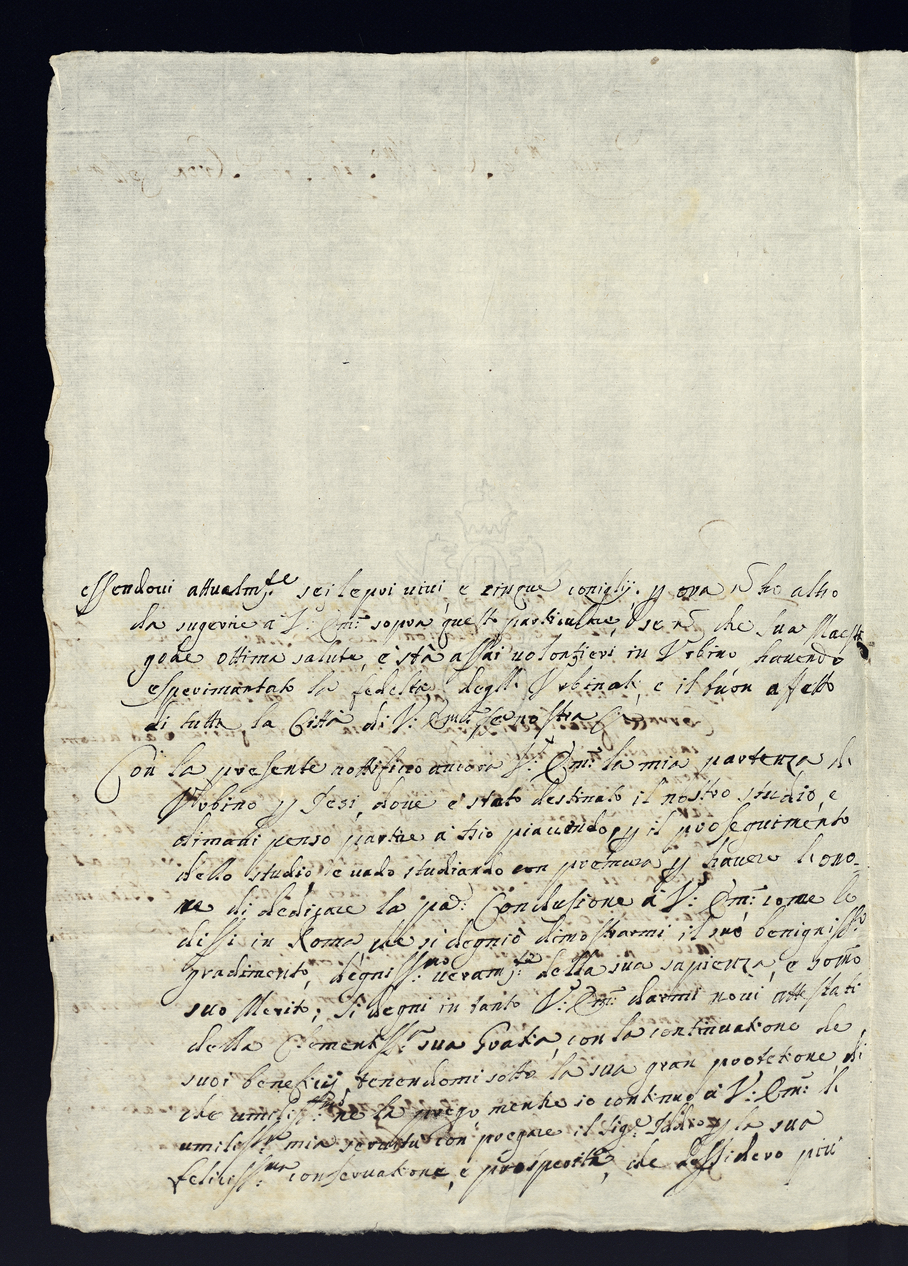 essendoui attualm.te sei lepri uiui, e cinque coniglij. y ora ñ ho altro
da sugerire a V: Em: sopra questo particulare, se ñ che sua Maestà
gode ottima salute, e stà assai uolontieri in Vrbino hauendo
esperimentato la fedeltà degli Vrbinati, e il buon affetto
di tutta la Città di V: Em: nostra
Con la presente notifico ancora V: Em: la mia partenza di
Vrbino y Jesi, doue è stato destinato il nostro studio, e
dimani penso partire a Dio piacendo, y il proseguimento
dello studio e uado studiando con premura y hauere l'ono-
re di dedicare la pa: Conclusione à V: Em: come le
dissi in Roma che si degniò dimostrarmi il suo benigniss.o
gradimento, degniss.mo ueram.te della sua sapienza, e somo
suo Merito; Si degni in tanto V: Em: darmi noui attestati
della Clementiss.a sua Gratia, con la continuatione de
suoi beneficij, tenendomi sotto la sua gran protetione, di
che umiliss.te ne la prego mentre io continuo à V: Em: le
umiliss.e mia seruitù con pregare il Sig.e Iddio y la sua
feliciss.ma conseruatione, e prosperità, che desidero più